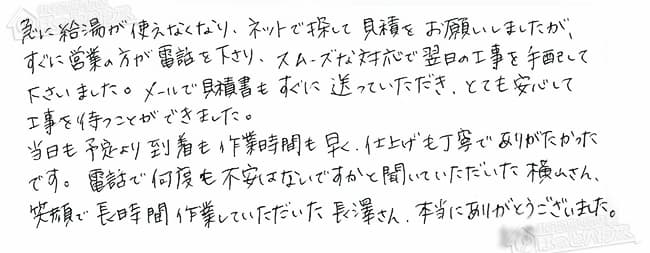 急に給湯が使えなくなり、ネットで探して見積をお願いしましたが、
すぐに営業の方が電話を下さり、スムーズな対応で翌日の工事を手配して
下さいました。メールで見積書もすぐに送っていただき、とても安心して
工事を待つことができました。
当日も予定より到着も作業時間も早く、仕上げも丁寧でありがたかった
です。電話で何度も不安はないですかと聞いていただいた横山さん、
笑顔で長時間作業していただいた長澤さん、本当にありがとうございました。